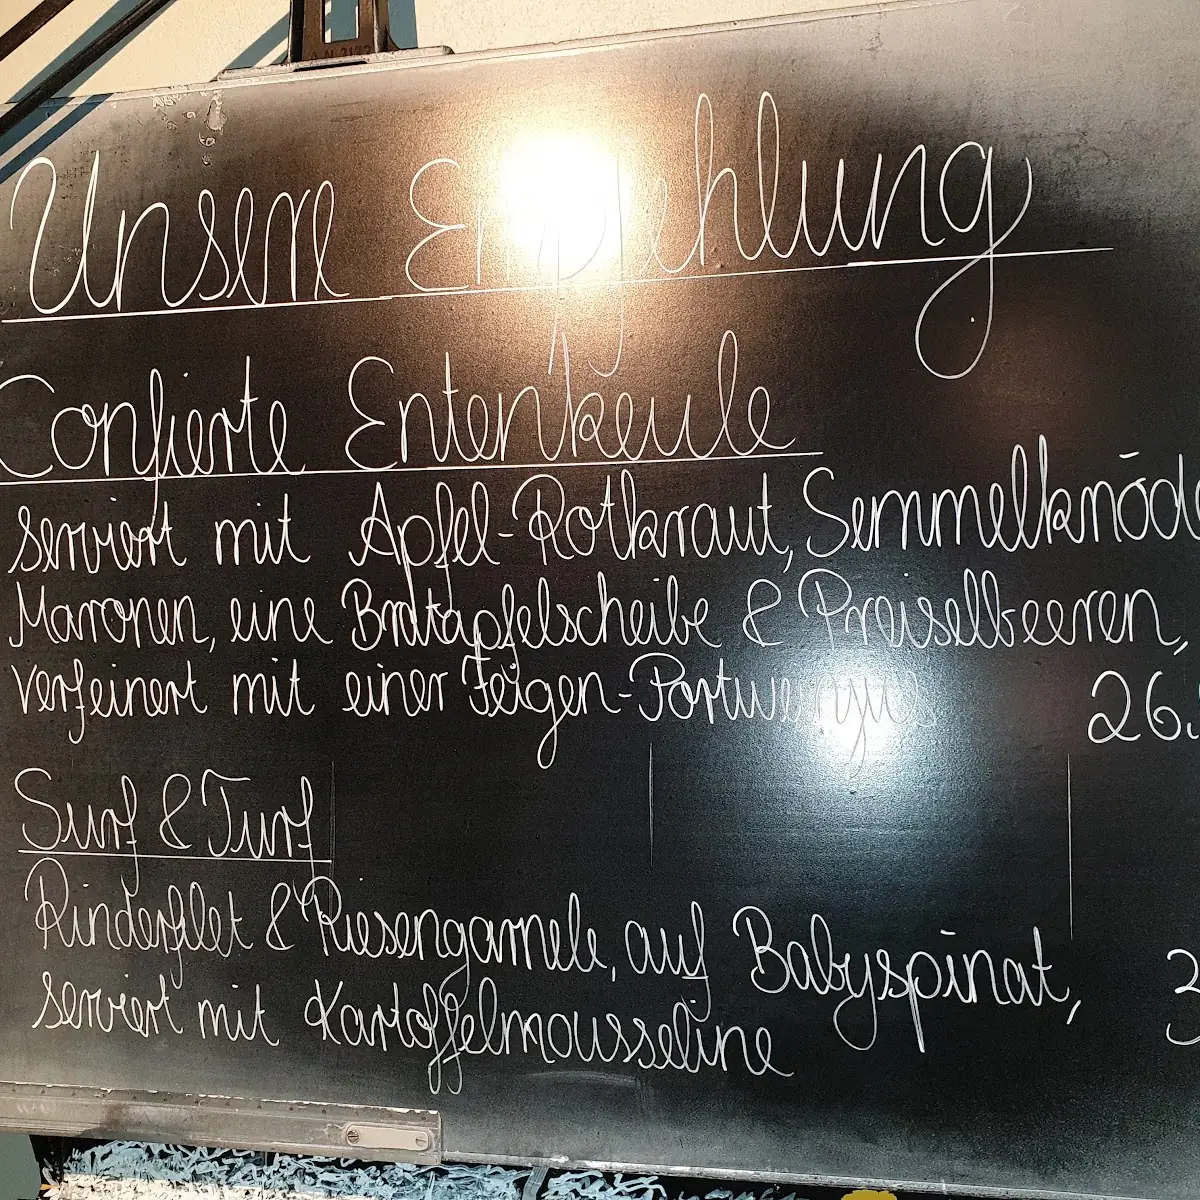 Unsere Empfehlung
Confierte Entenkeule
serviert mit Apfel-Rotkraut, Semmelknöde
Maronen, eine Bratapfelscheibe & Preiselbeeren,
verfeinert mit einer Feigen-Portweinjus 26.
Surf & Turf
Rinderfilet & Riesengarnele, auf Babyspinat, 3
serviert mit Kartoffelmousseline